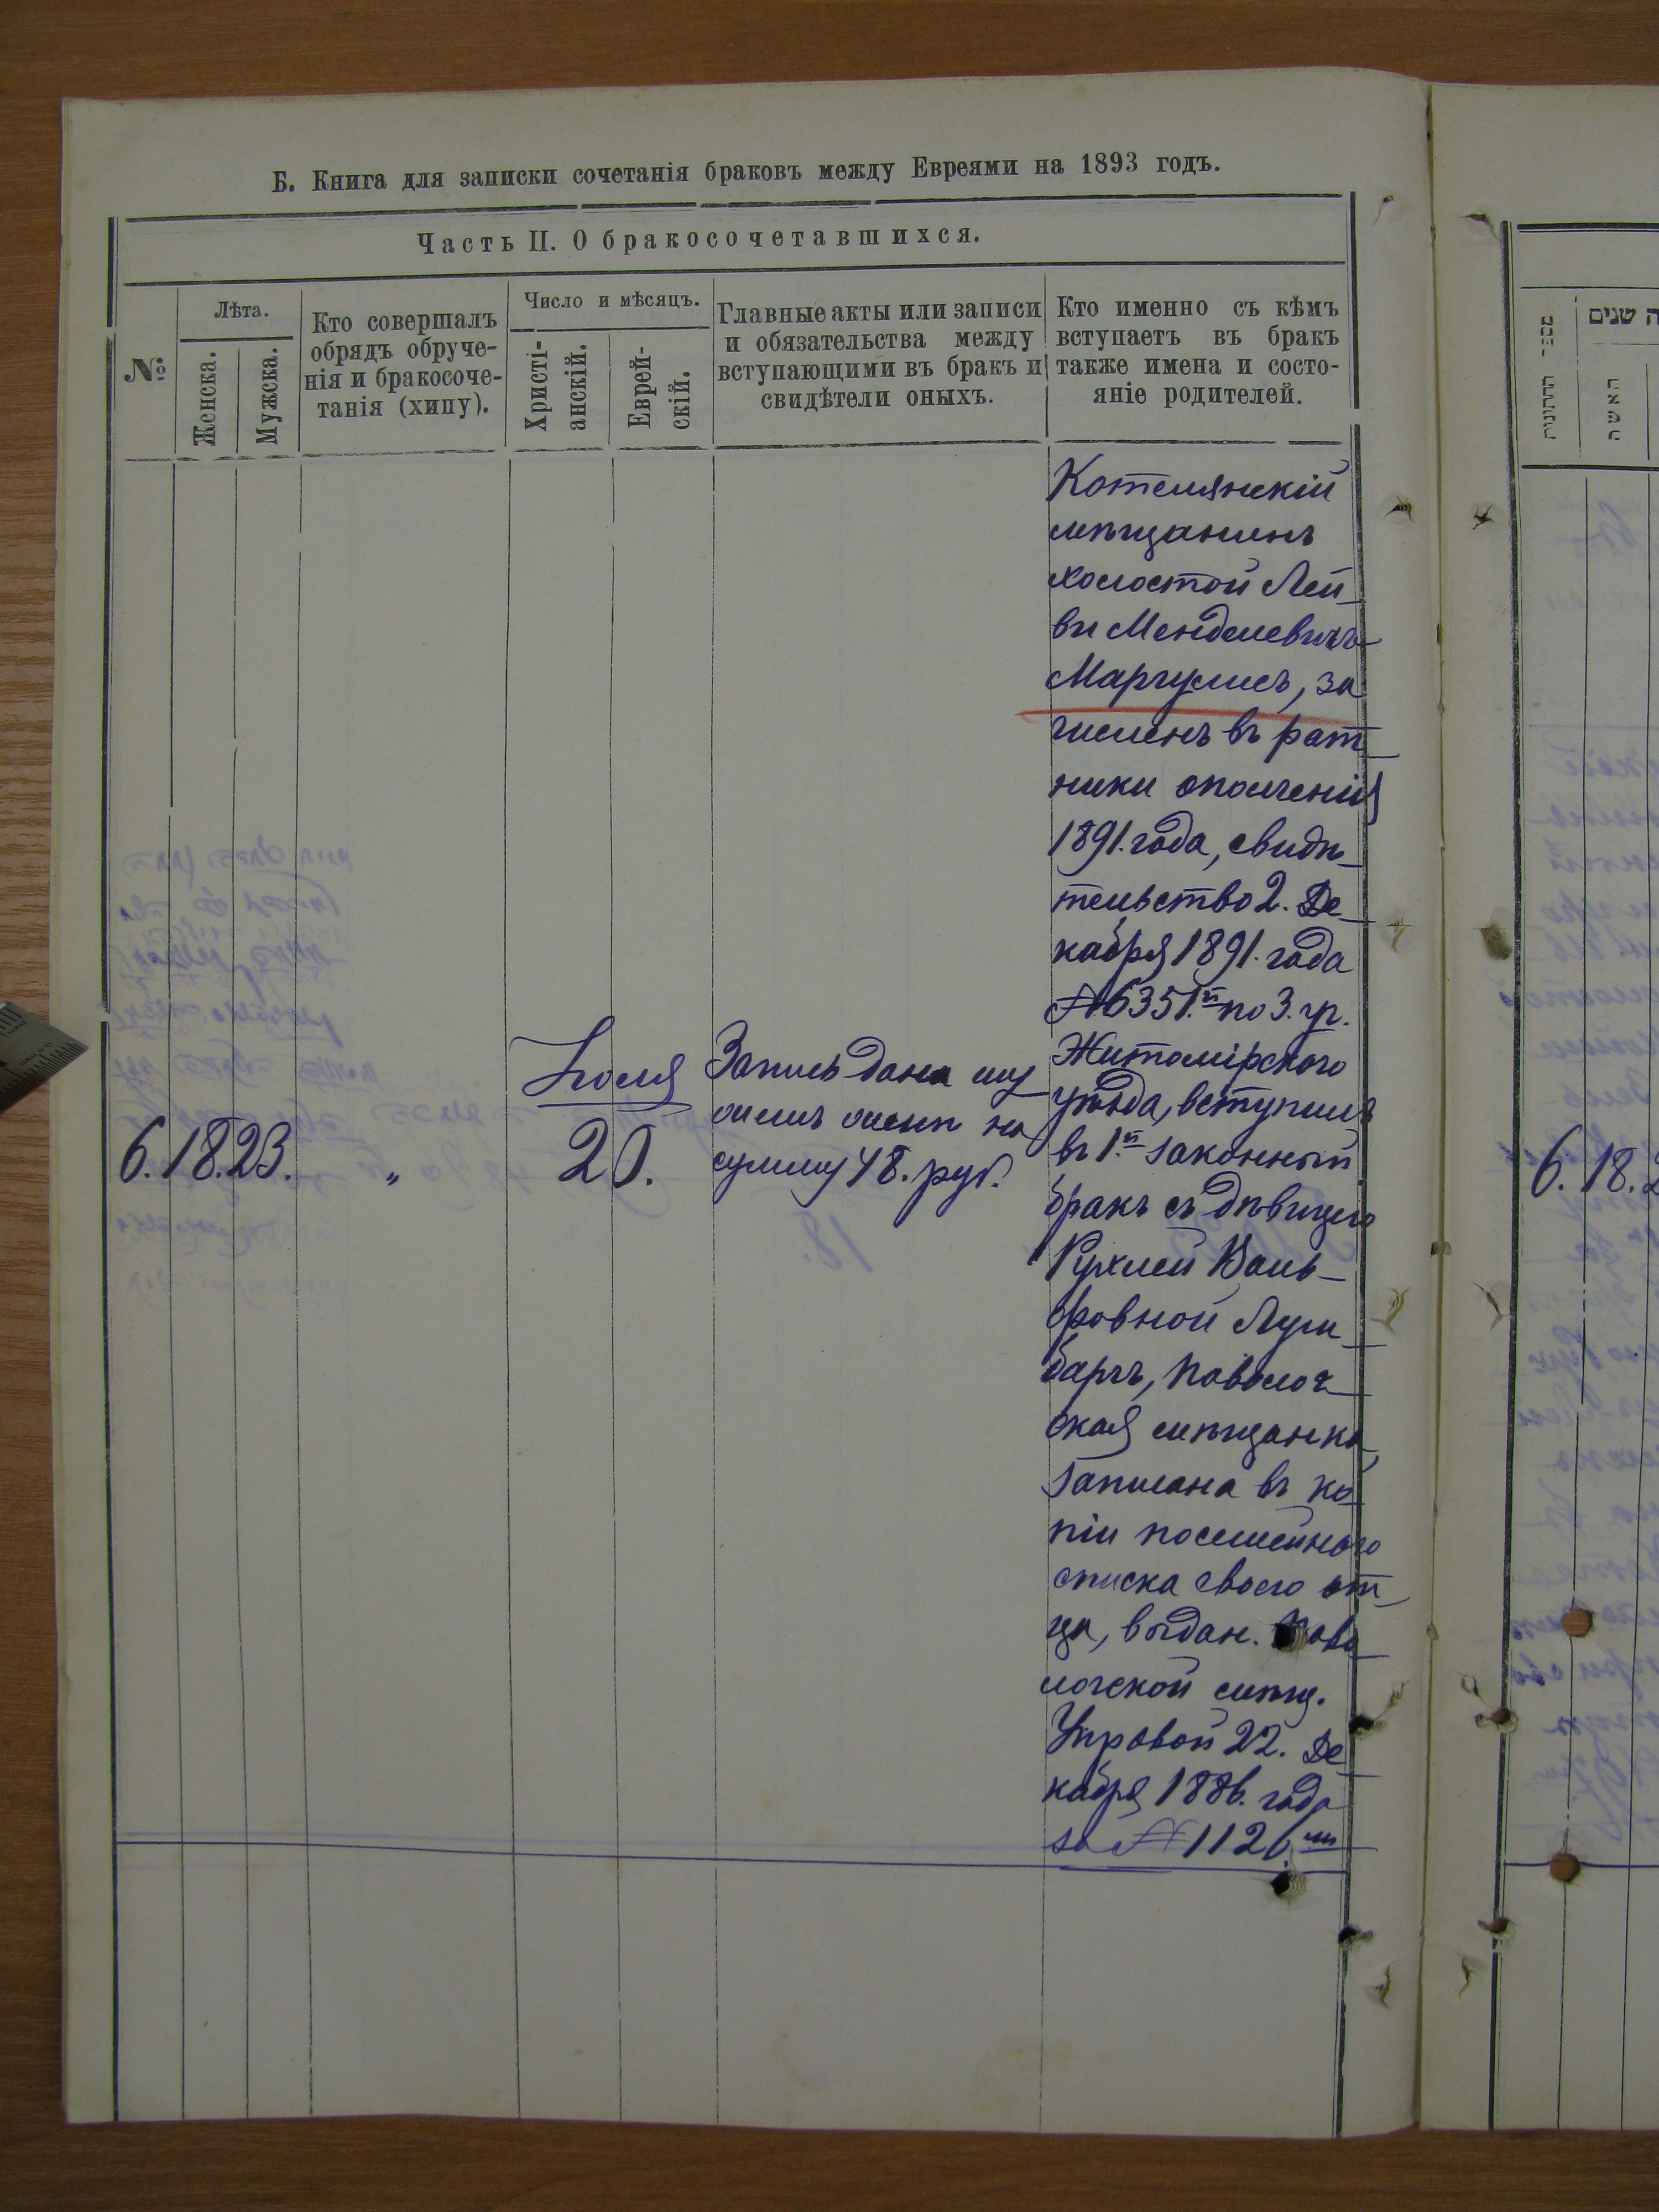 Б. Книга для записки сочетанія браковъ между Евреями на 1893 годъ.
Часть II. О бракосочетавшихся.
№
Лѣта.
Женска.
Мужска.
Кто совершалъ
обрядъ обруче-
нія и бракосоче-
танія (хипу).
Число и мѣсяцъ.
Христі-
анскій.
Еврей-
скій.
Главные акты или записи
и обязательства между
вступающими въ бракъ и
свидѣтели оныхъ.
Кто именно съ кѣмъ
вступаетъ въ бракъ
также имена и состо-
яніе родителей.
6. 18. 23. „
Іюля
20.
Запись дана му
жемъ женѣ на
сумму 48. руб.
Котелянскій
мѣщанинъ
холостой Лей
ви Менделевичъ
Маргулисъ, за
численъ въ рат
ники ополченія
1891. года, свидѣ
тельство 2. Де
кабря 1891. года
№ 6351. по 3. уч.
Житомірскаго
уѣзда, вступилъ
въ 1.й законный
бракъ съ дѣвицею
Рухлей Воль-
фовной Луги
барчъ, Паволоч
ская мѣщанка,
записана въ ко
піи посемейного
списка своего от
ца, выдан. Паво
лочской мѣщ.
Управой 22. Де
кабря 1886. года
за № 1126.
ה שנים
האשה
6. 18. 2